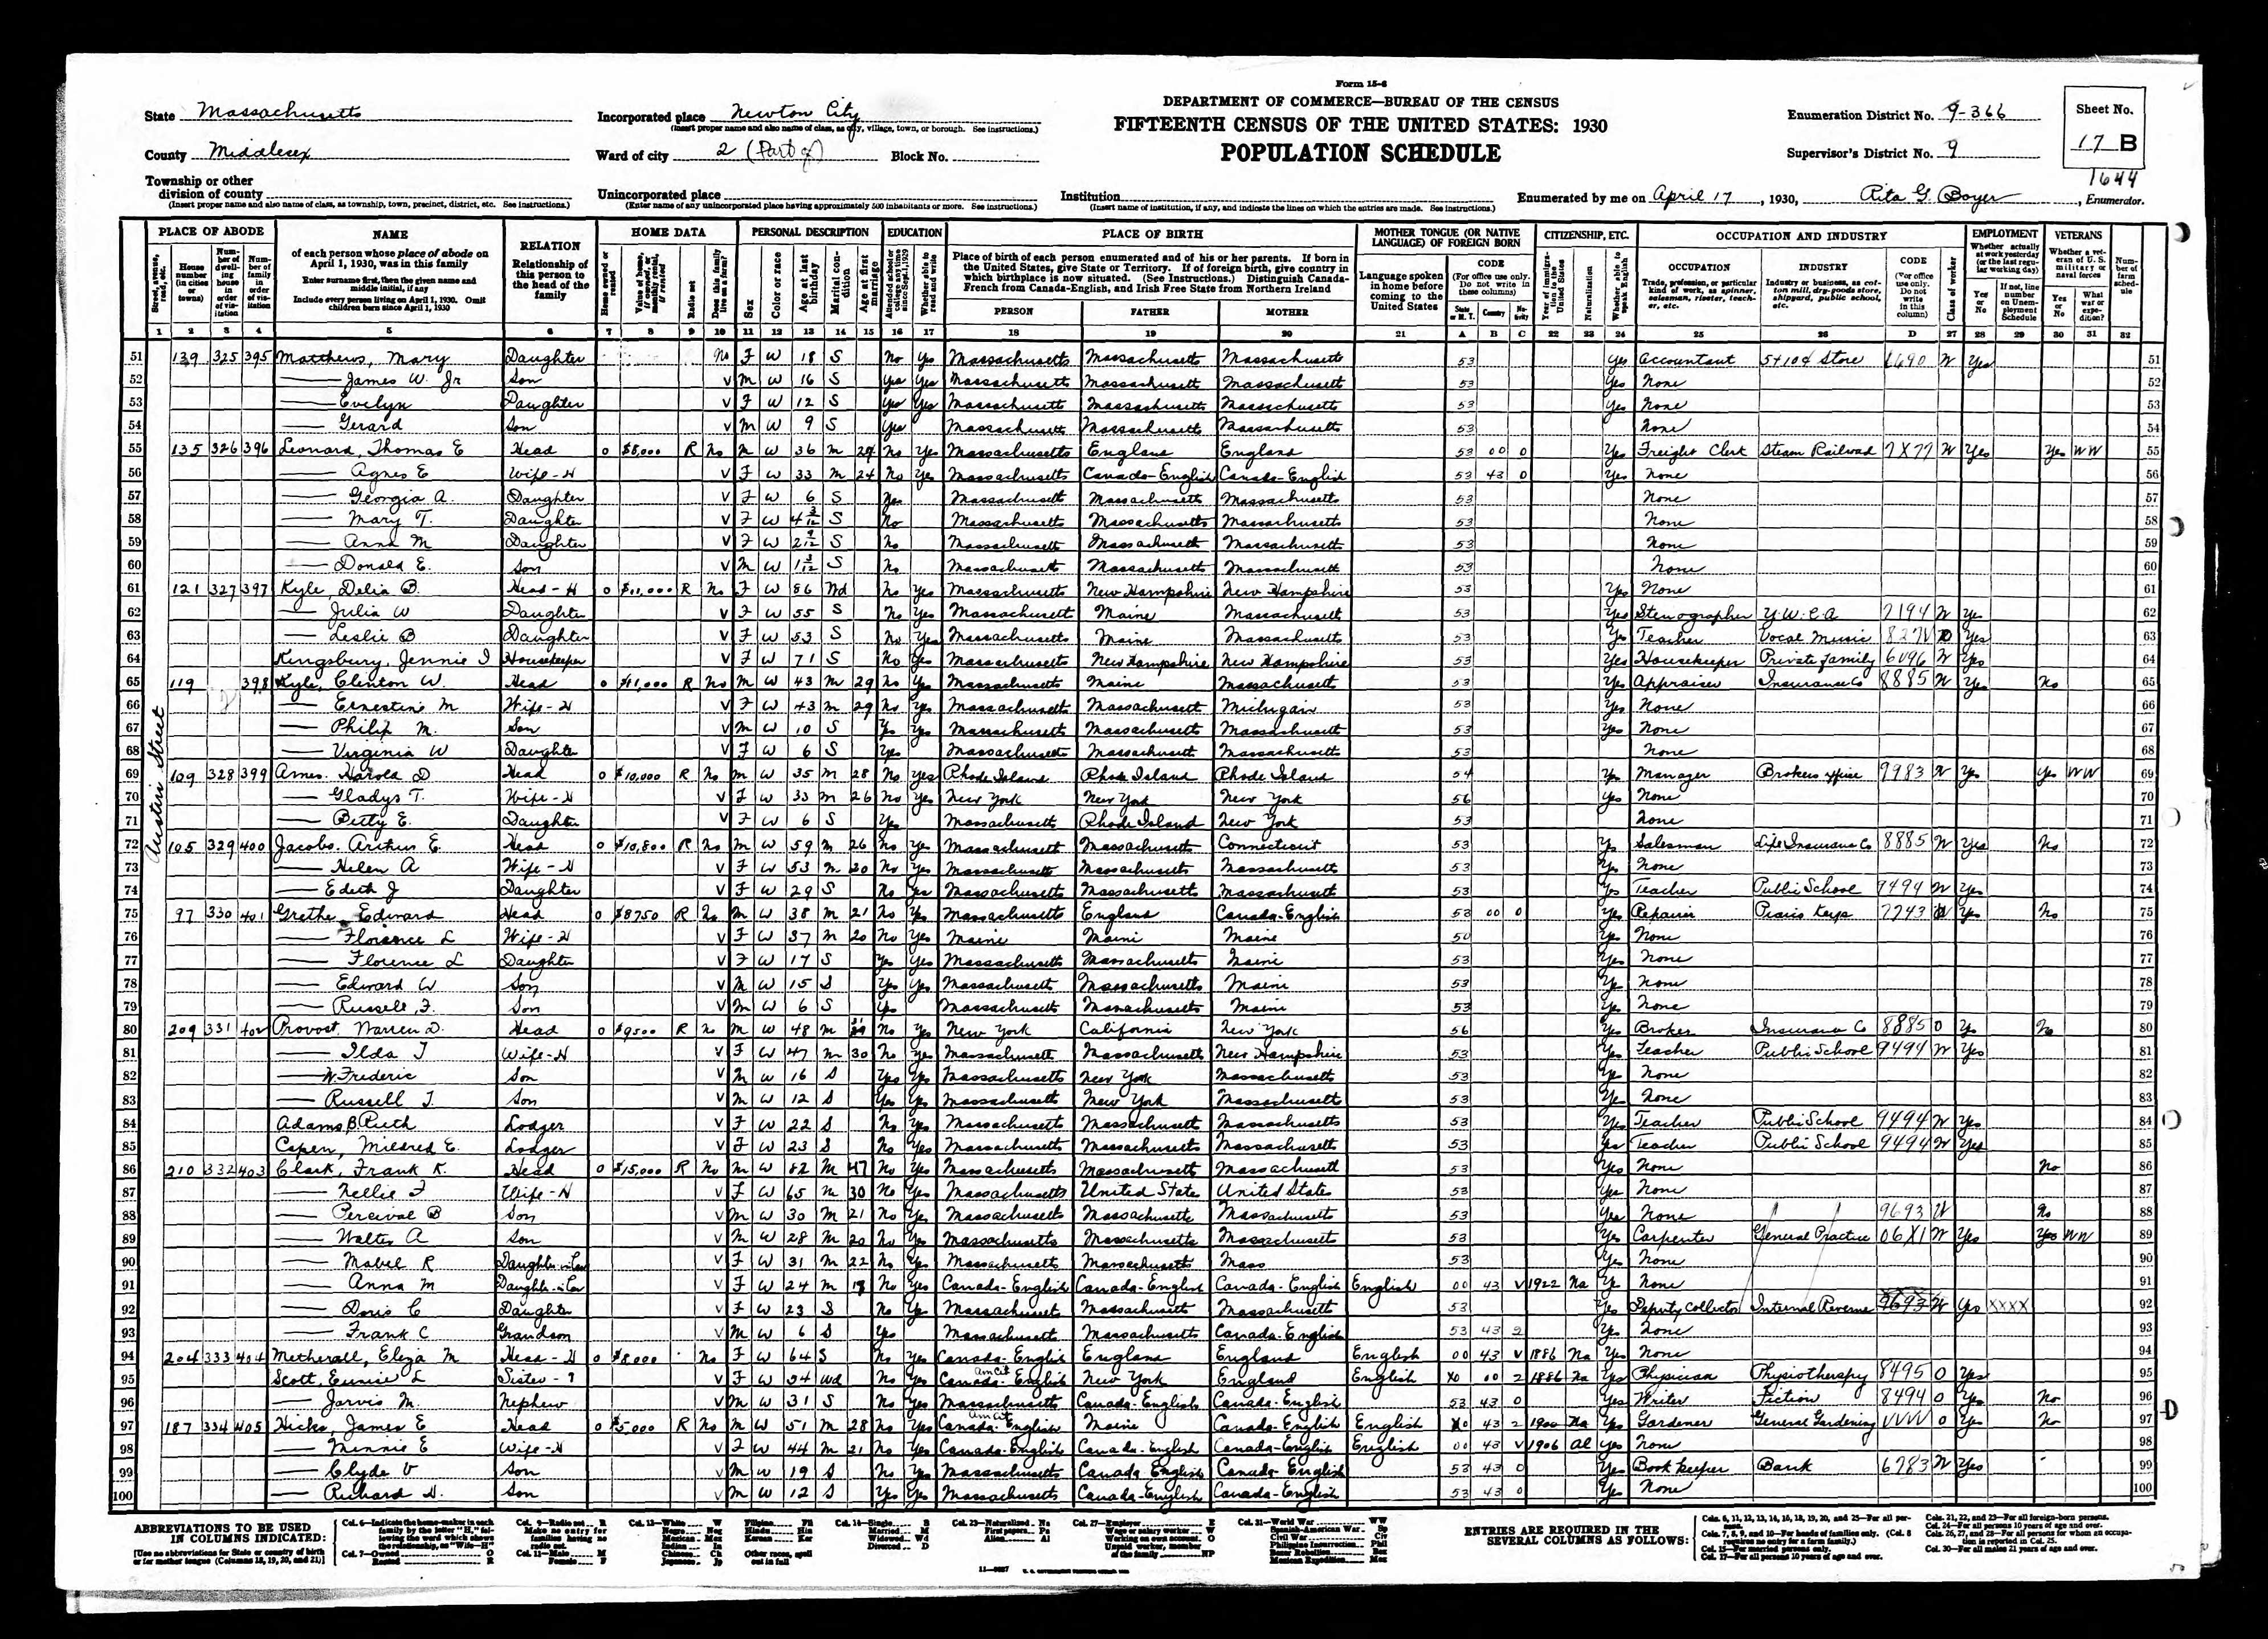 Form 15-6
State Massachusetts
Incorporated place Newton City
(Insert proper name and also name of class, as city, village, town, or borough. See instructions.)
DEPARTMENT OF COMMERCE—BUREAU OF THE CENSUS
FIFTEENTH CENSUS OF THE UNITED STATES: 1930
POPULATION SCHEDULE
Enumeration District No. 9-366
Sheet No.
17 B
County Middlesex
Ward of city 2 (Part of) Block No.
Supervisor's District No. 9
1644
Township or other division of county
(Insert proper name and also name of class, as township, town, precinct, district, etc. See instructions.)
Unincorporated place
(Enter name of any unincorporated place having approximately 500 inhabitants or more. See instructions.)
Institution
(Insert name of institution, if any, and indicate the lines on which the entries are made. See instructions.)
Enumerated by me on April 17, 1930, Rita G. Boyer, Enumerator.
PLACE OF ABODE NAME RELATION HOME DATA PERSONAL DESCRIPTION EDUCATION PLACE OF BIRTH MOTHER TONGUE (OR NATIVE LANGUAGE) OF FOREIGN BORN CITIZENSHIP, ETC. OCCUPATION AND INDUSTRY EMPLOYMENT VETERANS
1 2 3 4 5 6 7 8 9 10 11 12 13 14 15 16 17 18 19 20 21 A B C 22 23 24 25 26 D 27 28 29 30 31 32
Austin Street
51 139 325 395 Matthews, Mary Daughter No F W 18 S No Yes Massachusetts Massachusetts Massachusetts 53 Yes Accountant 5+10¢ Store W Yes 51
52 — James W. Jr Son V M W 16 S Yes Yes Massachusetts Massachusetts Massachusetts 53 Yes None 52
53 — Evelyn Daughter V F W 12 S Yes Yes Massachusetts Massachusetts Massachusetts 53 Yes None 53
54 — Gerard Son V M W 9 S Yes Massachusetts Massachusetts Massachusetts 53 None 54
55 135 326 396 Leonard, Thomas E Head O $8,000 R No M W 36 M No Yes Massachusetts England England 53 00 0 Yes Freight Clerk Steam Railroad 7X77 W Yes Yes WW 55
56 — Agnes E Wife-H V F W 33 M 24 No Yes Massachusetts Canada-English Canada-English 53 43 0 Yes None 56
57 — Georgia A. Daughter V F W 6 S Massachusetts Massachusetts Massachusetts 53 None 57
58 — Mary T. Daughter V F W 4 3/12 S No Massachusetts Massachusetts Massachusetts 53 None 58
59 — Anna M Daughter V F W 2 9/12 S No Massachusetts Massachusetts Massachusetts 53 None 59
60 — Donald E. Son V M W 1 3/12 S No Massachusetts Massachusetts Massachusetts 53 None 60
61 121 327 397 Kyle, Delia B. Head-H O $11,000 R No F W 86 Wd No Yes Massachusetts New Hampshire New Hampshire 53 Yes None 61
62 — Julia W Daughter V F W 55 S No Yes Massachusetts Maine Massachusetts 53 Yes Stenographer Y.W.C.A W Yes 62
63 — Leslie B Daughter V F W 53 S No Yes Massachusetts Maine Massachusetts 53 Yes Teacher Vocal Music Yes 63
64 Kingsbury, Jennie I Housekeeper V F W 71 S No Yes Massachusetts New Hampshire New Hampshire 53 Yes Housekeeper Private family W Yes 64
65 119 398 Kyle, Clinton W. Head O $11,000 R No M W 43 M 29 No Yes Massachusetts Maine Massachusetts 53 Yes Appraiser Insurance Co 8885 W Yes No 65
66 — Ernestine M Wife-H V F W 43 M 29 No Yes Massachusetts Massachusetts Michigan 53 Yes None 66
67 — Philip M. Son V M W 10 S Yes Yes Massachusetts Massachusetts Massachusetts 53 Yes None 67
68 — Virginia W Daughter V F W 6 S Yes Massachusetts Massachusetts Massachusetts 53 None 68
69 109 328 399 Ames. Harold D Head O $10,000 R No M W 35 M 28 No Yes Rhode Island Rhode Island Rhode Island 54 Yes Manager Brokers office 9983 W Yes Yes WW 69
70 — Gladys T. Wife-H V F W 33 M 26 No Yes New York New York New York 56 Yes None 70
71 — Betty E. Daughter V F W 6 S Yes Massachusetts Rhode Island New York 53 None 71
72 105 329 400 Jacobs. Arthur E. Head O $10,800 R No M W 59 M 26 No Yes Massachusetts Massachusetts Connecticut 53 Yes Salesman Life Insurance Co 8885 W Yes No 72
73 — Helen A Wife-H V F W 53 M 20 No Yes Massachusetts Massachusetts Massachusetts 53 Yes None 73
74 — Edith J Daughter V F W 29 S No Yes Massachusetts Massachusetts Massachusetts 53 Yes Teacher Public School 9494 W Yes 74
75 97 330 401 Grethe Edward Head O $8750 R No M W 38 M 21 No Yes Massachusetts England Canada-English 53 00 0 Yes Repairer 7743 Yes No 75
76 — Florence L Wife-H V F W 37 M 20 No Yes Maine Maine Maine 50 Yes None 76
77 — Florence L Daughter V F W 17 S Yes Yes Massachusetts Massachusetts Maine 53 Yes None 77
78 — Edward W Son V M W 15 S Yes Yes Massachusetts Massachusetts Maine 53 Yes None 78
79 — Russell F. Son V M W 6 S Yes Massachusetts Massachusetts Maine 53 Yes None 79
80 209 331 402 Provost, Warren D. Head O $9500 R No M W 48 M 31 No Yes New York California New York 56 Yes Broker Insurance Co 8885 O Yes No 80
81 — Ilda T Wife-H V F W 47 M 30 No Yes Massachusetts Massachusetts New Hampshire 53 Yes Teacher Public School 9494 W Yes 81
82 — W. Frederic Son V M W 16 S Yes Yes Massachusetts New York Massachusetts 53 Yes None 82
83 — Russell T. Son V M W 12 S Yes Yes Massachusetts New York Massachusetts 53 Yes None 83
84 Adams, B Ruth Lodger V F W 22 S No Yes Massachusetts Massachusetts Massachusetts 53 Yes Teacher Public School 9494 W Yes 84
85 Capen, Mildred E. Lodger V F W 23 S No Yes Massachusetts Massachusetts Massachusetts 53 Yes Teacher Public School 9494 W Yes 85
86 210 332 403 Clark, Frank K. Head O $15,000 R No M W 82 M 47 No Yes Massachusetts Massachusetts Massachusetts 53 Yes None No 86
87 — Nellie F Wife-H V F W 65 M 30 No Yes Massachusetts United State United States 53 Yes None 87
88 — Percival B Son V M W 30 M 21 No Yes Massachusetts Massachusetts Massachusetts 53 Yes None 9693 W No 88
89 — Walter A Son V M W 28 M 20 No Yes Massachusetts Massachusetts Massachusetts 53 Yes Carpenter General Practice 06X1 W Yes Yes WW 89
90 — Mabel R Daughter-in-Law V F W 31 M 22 No Yes Massachusetts Massachusetts Mass 53 Yes None 90
91 — Anna M Daughter-in-Law V F W 24 M No Yes Canada-English Canada-English Canada-English English 00 43 V 1922 Na Yes None 91
92 — Doris C Daughter V F W 23 S No Yes Massachusetts Massachusetts Massachusetts 53 Yes Deputy Collector Internal Revenue 9693 W Yes XXXX 92
93 — Frank C Grandson V M W 6 S Yes Massachusetts Massachusetts Canada-English 53 43 2 Yes None 93
94 204 333 404 Metherall, Eliza M Head-H O $8,000 No F W 64 S No Yes Canada-English England England English 00 43 V 1886 Na Yes None 94
95 Scott, Eunice L Sister V F W Wd No Yes Canada-English Am Cit New York England English X0 00 2 1886 Na Yes Physician Physiotherapy 8495 O Yes 95
96 — Jarvis M. Nephew V M W 31 S No Yes Massachusetts Canada-English Canada-English 53 43 0 Yes Writer Fiction 8494 O Yes No 96
97 187 334 405 Hicks, James E Head O $5,000 R No M W 51 M 28 No Yes Canada-English Am Cit Maine Canada-English English X0 43 2 1900 Na Yes Gardener General Gardening VVVV O Yes No 97
98 — Minnie E Wife-H V F W 44 M 21 No Yes Canada-English Canada-English Canada-English English 00 43 V 1906 Al Yes None 98
99 — Clyde V Son V M W 19 S No Yes Massachusetts Canada English Canada-English 53 43 0 Yes Book keeper Bank 6783 W Yes 99
100 — Richard D. Son V M W 12 S Yes Yes Massachusetts Canada-English Canada-English 53 43 0 Yes None 100
ABBREVIATIONS TO BE USED IN COLUMNS INDICATED:
[Use no abbreviations for State or country of birth or for mother tongue (Columns 18, 19, 20, and 21)]
ENTRIES ARE REQUIRED IN THE SEVERAL COLUMNS AS FOLLOWS: